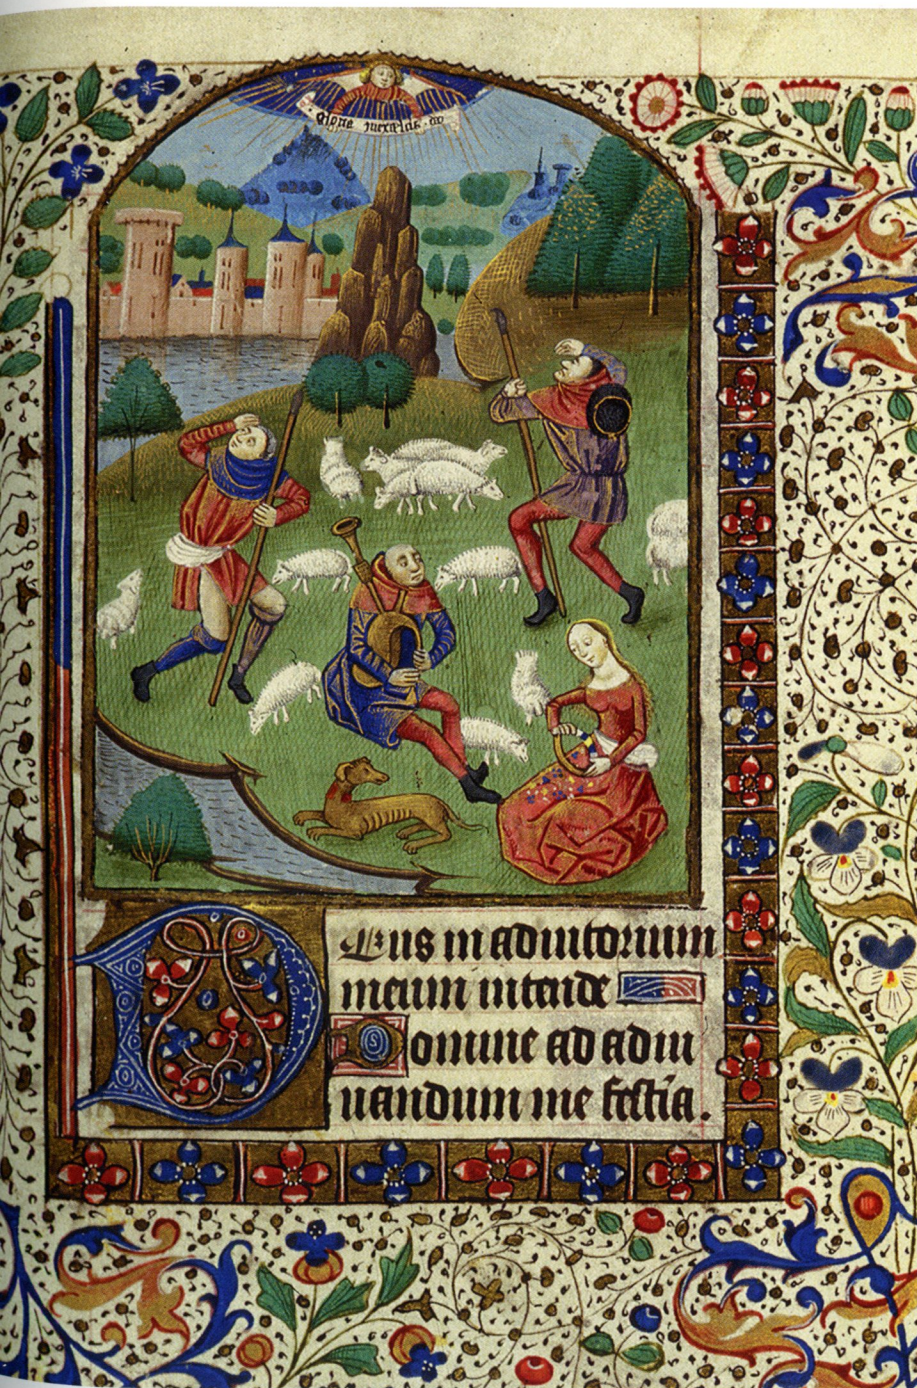 gloria inexcelsis do
DEus in adiutorium
meum intende
Domine ad adiu
uandum me festīa.